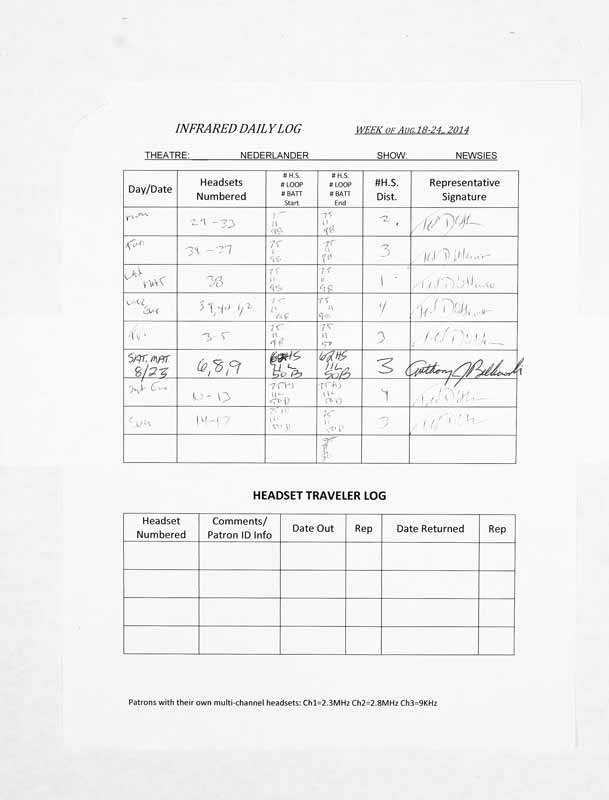 INFRARED DAILY LOG WEEK OF AUG.18-24,, 2014
THEATRE: NEDERLANDER SHOW: NEWSIES
Day/Date Headsets Numbered # H.S. # LOOP # BATT Start # H.S. # LOOP # BATT End #H.S. Dist. Representative Signature
29-33 75 11 98 75 11 98 2
34-37 75 98 75 98 3
MAT 38 75 11 98 75 11 98 1
Eve 75 11 75 11 98 4
3-5 75 11 98 75 11 50 3
SAT. MAT. 8/23 6,8,9 HS 11L 50B 62HS 11L 50B 3 Anthony J
Sat Eve 10-13 75HS 11L 75HS 11L 4
Sun 14-17 75 3
HEADSET TRAVELER LOG
Headset Numbered Comments/ Patron ID Info Date Out Rep Date Returned Rep
Patrons with their own multi-channel headsets: Ch1=2.3MHz Ch2=2.8MHz Ch3=9KHz